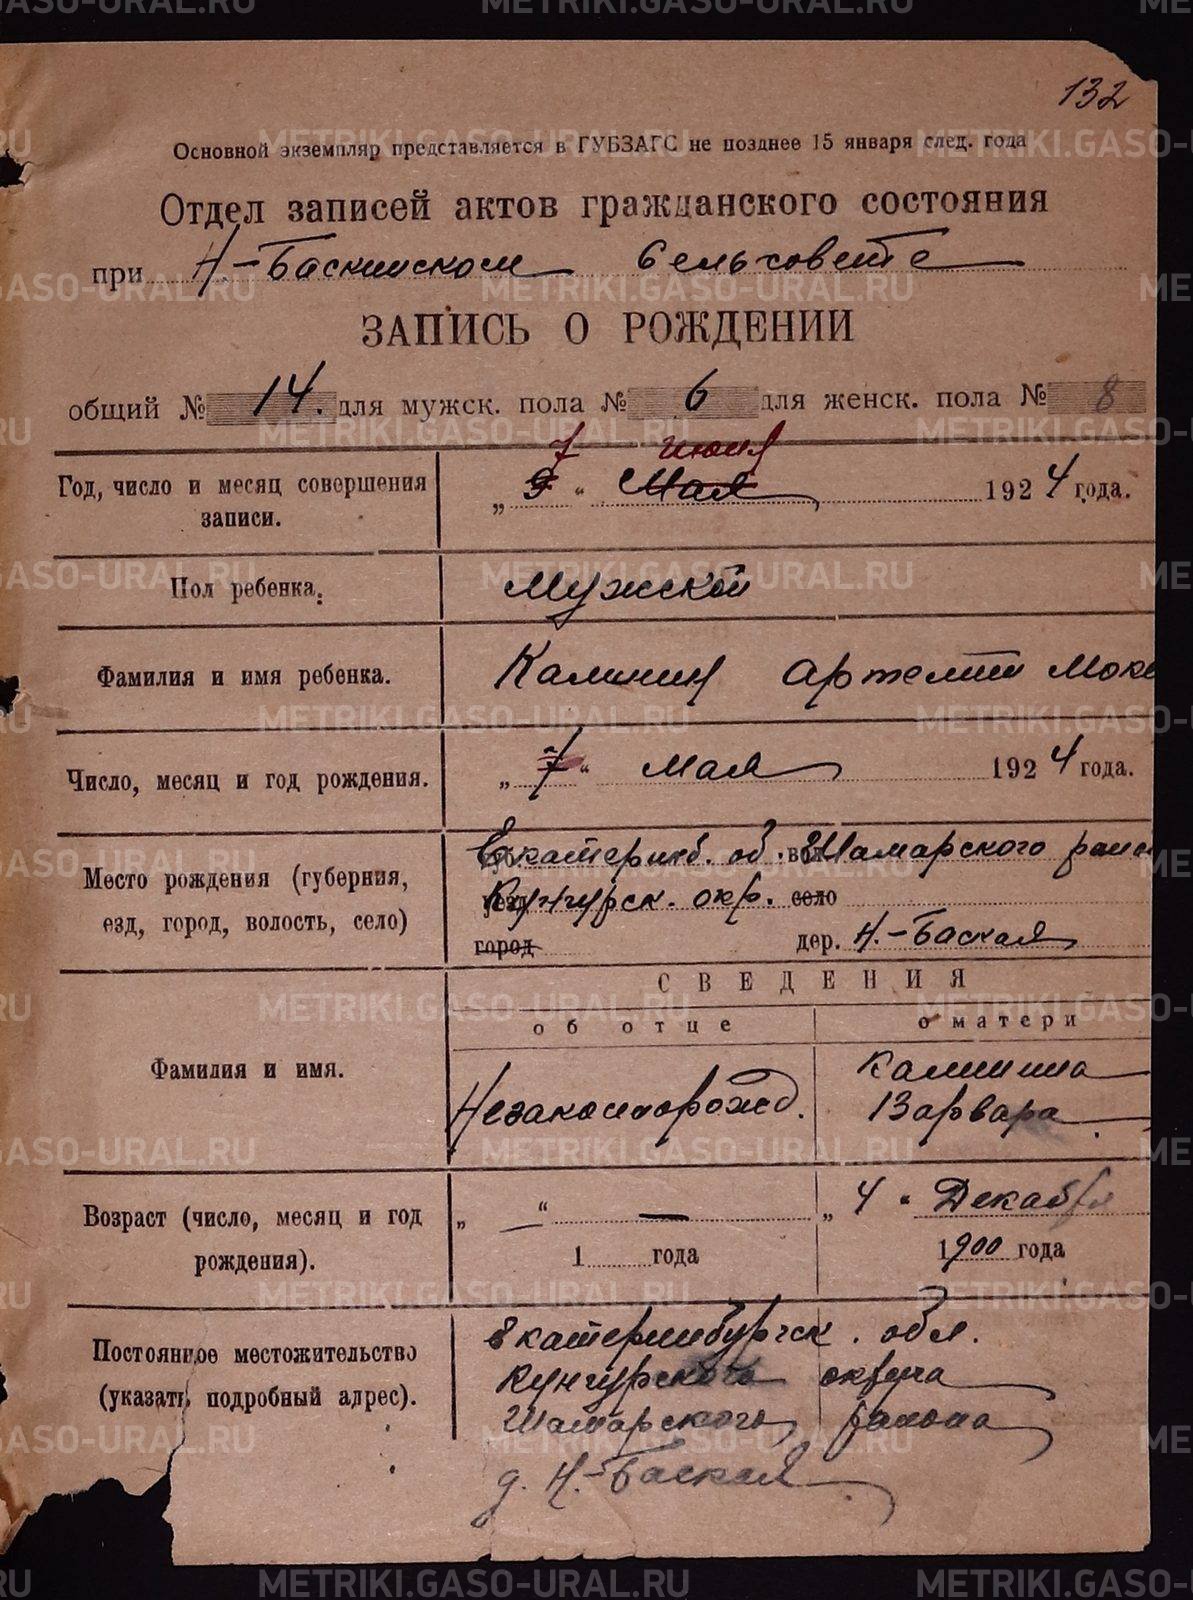 132
Основной экземпляр представляется в ГУБЗАГС не позднее 15 января след. года
Отдел записей актов гражданского состояния
при Н.-Баскинском Сельсовете
ЗАПИСЬ О РОЖДЕНИИ
общий № 14. для мужск. пола № 6 для женск. пола № 8
7 июня
Год, число и месяц совершения записи. „ 9 “ Мая 1924 года.
Пол ребенка. Мужской
Фамилия и имя ребенка. Калинин Артемий Моке
Число, месяц и год рождения. „ 7 “ мая 1924 года.
Место рождения (губерния, Екатеринб. об. вол. Шамарского район
езд, город, волость, село) Кунгурск. окр. село
город дер. Н.-Баская
СВЕДЕНИЯ
об отце о матери
Фамилия и имя. Незаконнорожд. Калинина
Варвара
Возраст (число, месяц и год „ — “ — „ 4 “ Декабря
рождения). 1 года 1900 года
Постоянное местожительство Екатеринбургск. обл.
(указать подробный адрес). Кунгурского округа
Шамарского района
д. Н.-Баская
METRIKI.GASO-URAL.RU